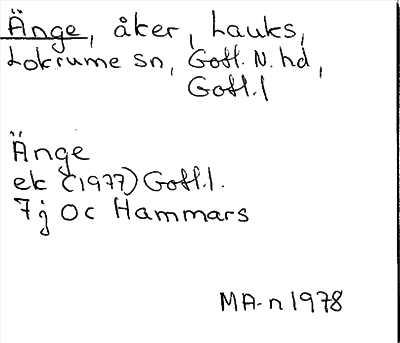 Änge, åker, Lauks,
Lokrume sn, Gotl. N. hd,
Gotl. l
Änge
ek (1977) Gotl. l.
7j Oc Hammars
MA-n 1978